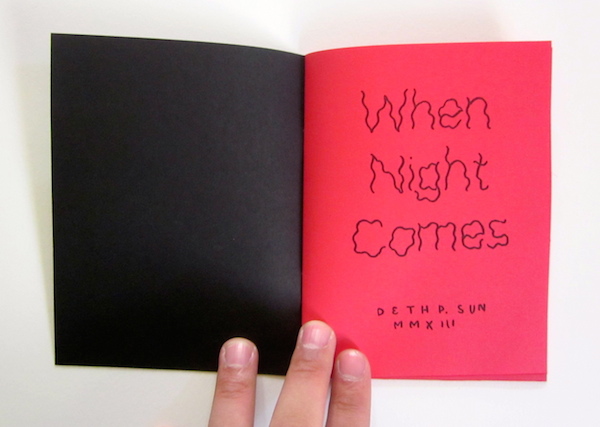 When
Night
Comes
DETH P. SUN
MMXIII